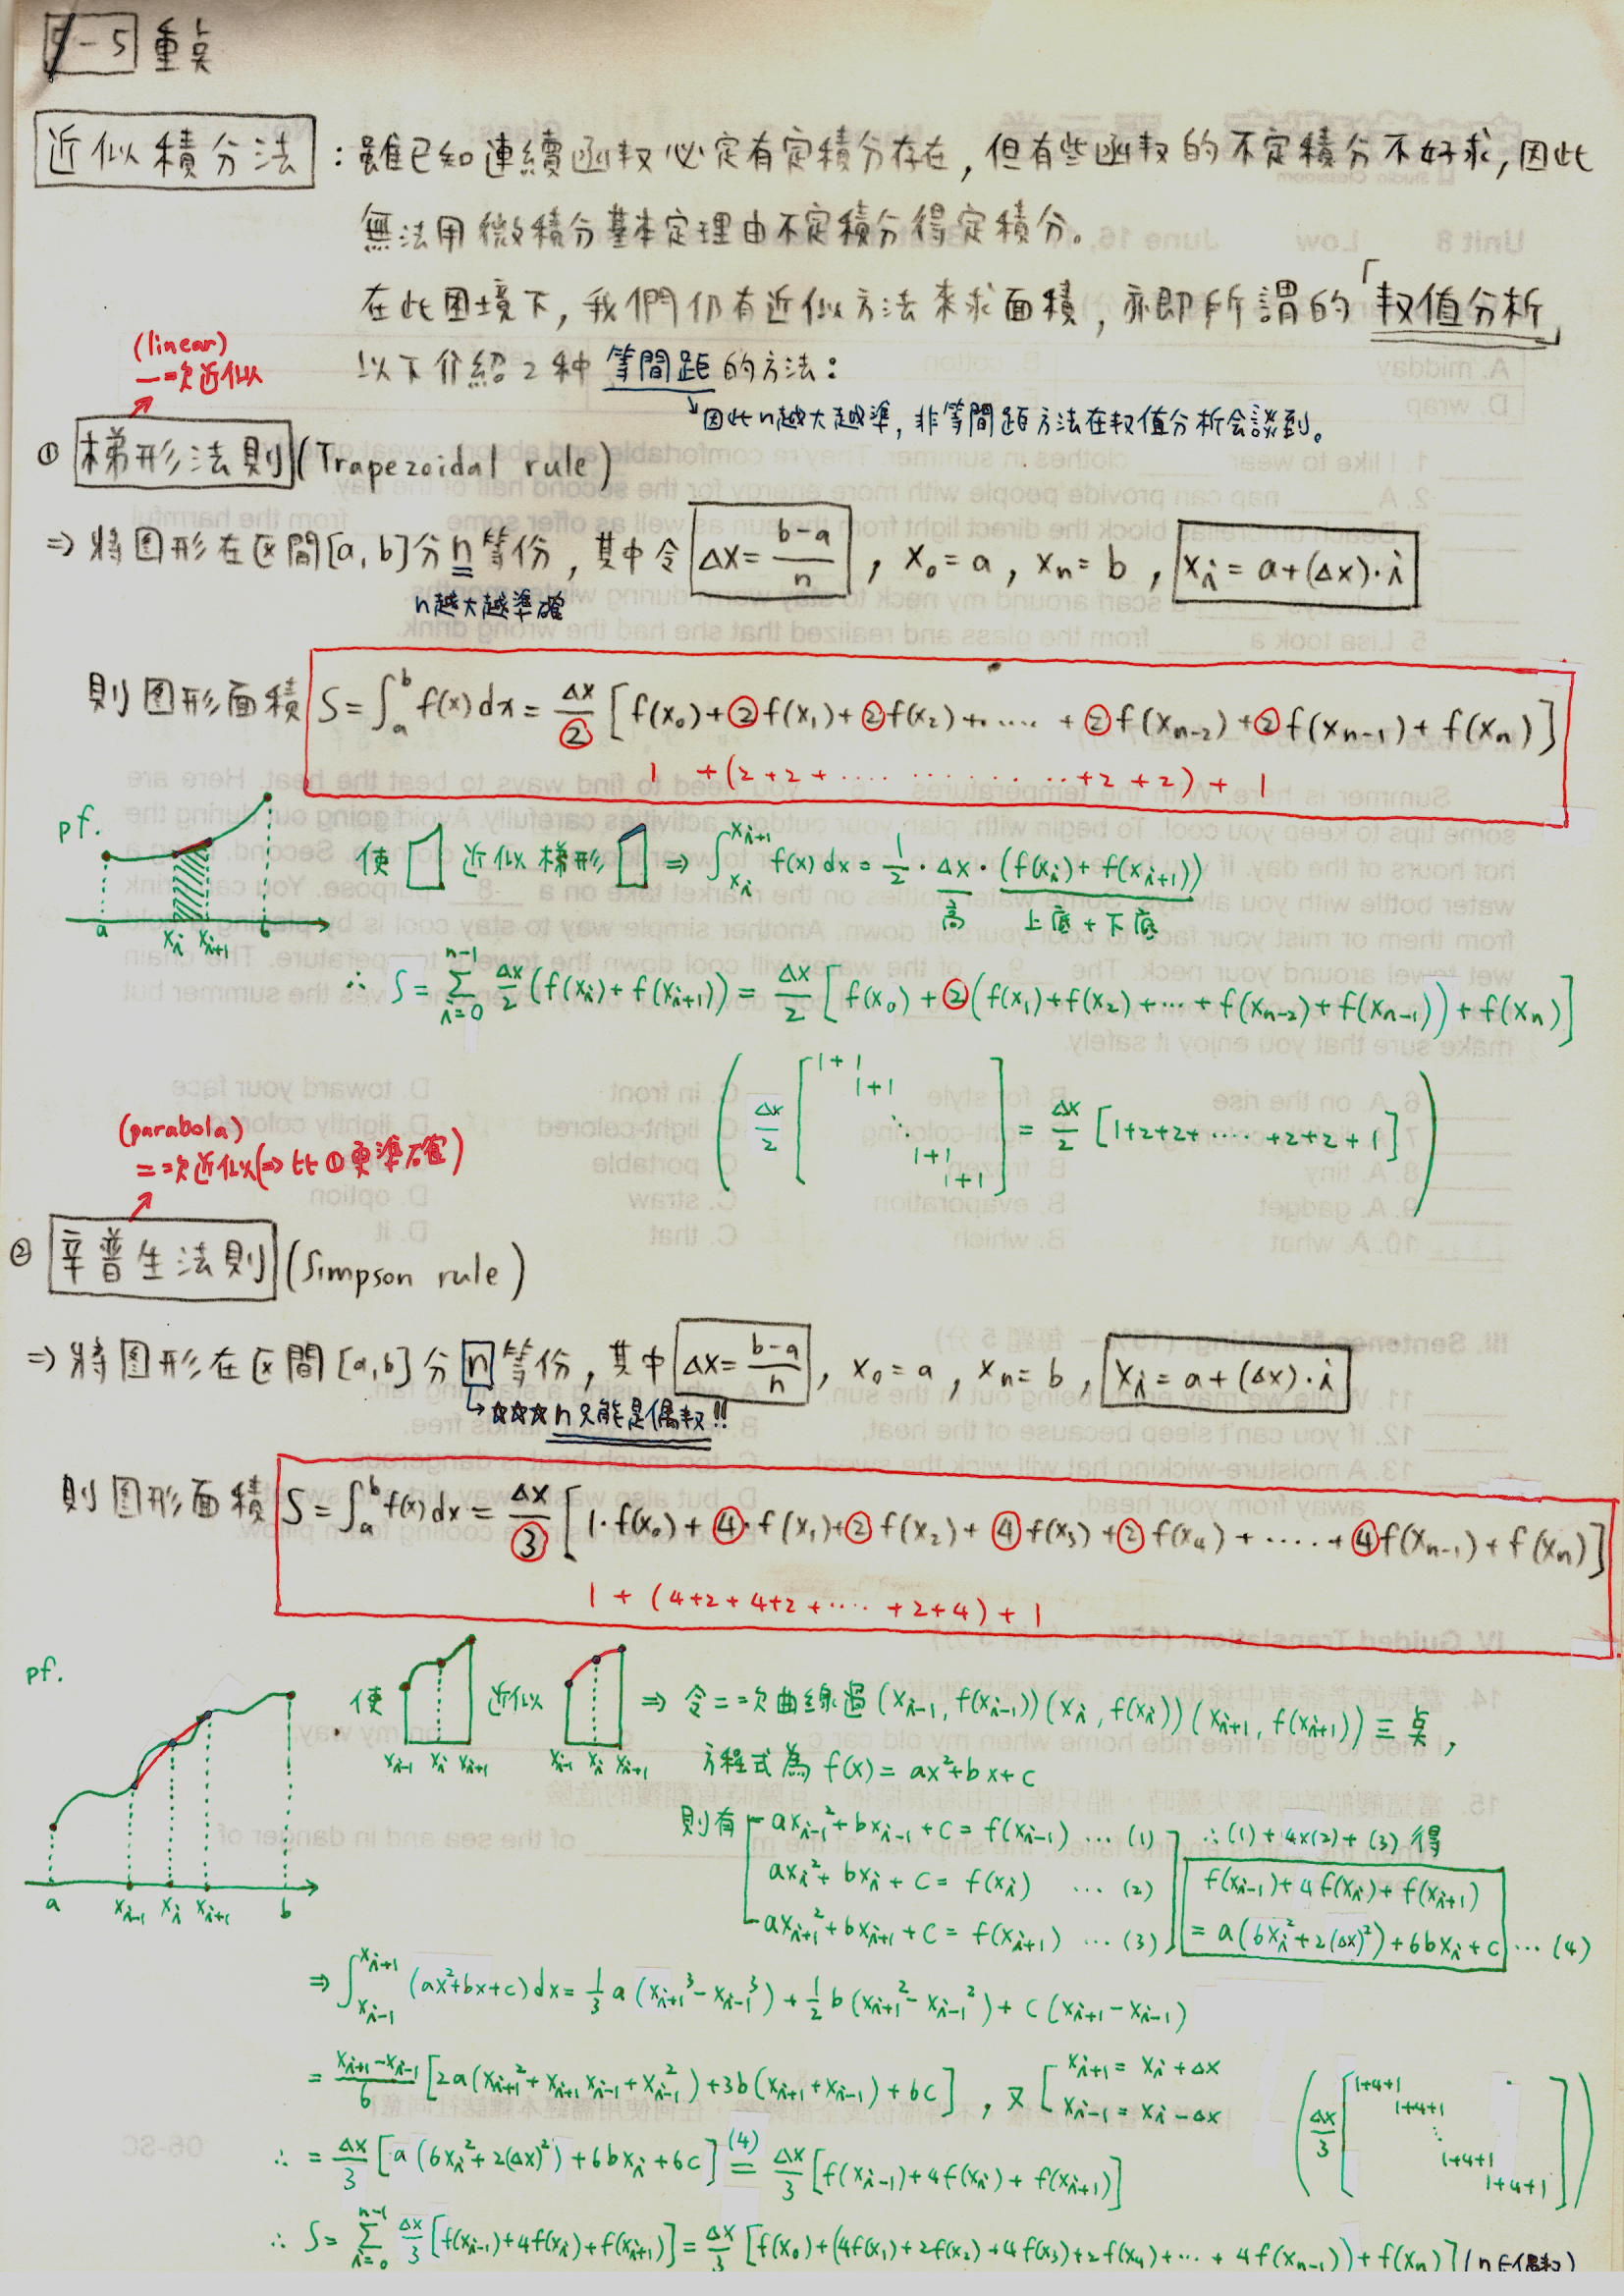 5-5 重点
近似積分法：雖已知連續函数必定有定積分存在, 但有些函数的不定積分不好求, 因此
無法用微積分基本定理由不定積分得定積分。
在此困境下, 我們仍有近似方法來求面積, 亦即所謂的「数值分析」
以下介紹2種等間距的方法：
因此n越大越準, 非等間距方法在数值分析会談到。
(linear)
一次近似
① 梯形法則 (Trapezoidal rule)
⇒ 將图形在区間[a, b]分n等份, 其中令 Δx = (b-a)/n , x₀ = a , xₙ = b , xᵢ = a+(Δx)·i
n越大越準確
則图形面積 S = ∫ₐᵇ f(x)dx = Δx/2 [f(x₀)+2f(x₁)+2f(x₂)+..... + 2f(xₙ₋₂)+2f(xₙ₋₁)+f(xₙ)]
1 + (2+2+ ............ +2+2) + 1
pf.
使 近似梯形 ⇒ ∫_{xᵢ}^{xᵢ₊₁} f(x)dx = 1/2 · Δx · (f(xᵢ)+f(xᵢ₊₁))
高 上底 + 下底
a xᵢ xᵢ₊₁ b
∴ S = Σ_{i=0}^{n-1} Δx/2 (f(xᵢ)+f(xᵢ₊₁)) = Δx/2 [f(x₀) + 2(f(x₁)+f(x₂)+...+f(xₙ₋₂)+f(xₙ₋₁))+f(xₙ)]
( Δx/2 [ 1+1
1+1
⋱
1+1
1+1 ] = Δx/2 [1+2+2+ ..... +2+2+1] )
(parabola)
二次近似(⇒比①更準確)
② 辛普生法則 (Simpson rule)
⇒ 將图形在区間[a,b]分n等份, 其中 Δx = (b-a)/n , x₀ = a , xₙ = b , xᵢ = a+(Δx)·i
☆☆☆ n只能是偶数!!
則图形面積 S = ∫ₐᵇ f(x)dx = Δx/3 [1·f(x₀)+4·f(x₁)+2f(x₂)+4f(x₃)+2f(x₄)+.....+4f(xₙ₋₁)+f(xₙ)]
1 + (4+2+4+2+ ..... +2+4) + 1
pf.
使 近似 ⇒ 令二次曲線過 (xᵢ₋₁, f(xᵢ₋₁)) (xᵢ, f(xᵢ)) (xᵢ₊₁, f(xᵢ₊₁)) 三点,
xᵢ₋₁ xᵢ xᵢ₊₁ xᵢ₋₁ xᵢ xᵢ₊₁ 方程式為 f(x) = ax²+bx+c
則有 axᵢ₋₁²+bxᵢ₋₁+c = f(xᵢ₋₁) ... (1) ∴(1)+4×(2)+(3)得
axᵢ²+bxᵢ+c = f(xᵢ) ... (2) f(xᵢ₋₁)+4f(xᵢ)+f(xᵢ₊₁)
axᵢ₊₁²+bxᵢ₊₁+c = f(xᵢ₊₁) ... (3) = a(6xᵢ²+2(Δx)²)+6bxᵢ+c ... (4)
a xᵢ₋₁ xᵢ xᵢ₊₁ b
⇒ ∫_{xᵢ₋₁}^{xᵢ₊₁} (ax²+bx+c)dx = 1/3 a (xᵢ₊₁³-xᵢ₋₁³) + 1/2 b (xᵢ₊₁²-xᵢ₋₁²) + c (xᵢ₊₁-xᵢ₋₁)
= (xᵢ₊₁-xᵢ₋₁)/6 [2a(xᵢ₊₁²+xᵢ₊₁xᵢ₋₁+xᵢ₋₁²)+3b(xᵢ₊₁+xᵢ₋₁)+6c] , 又 [ xᵢ₊₁ = xᵢ+Δx
xᵢ₋₁ = xᵢ-Δx
∴ = Δx/3 [a(6xᵢ²+2(Δx)²)+6bxᵢ+6c] (4)= Δx/3 [f(xᵢ₋₁)+4f(xᵢ)+f(xᵢ₊₁)]
( Δx/3 [ 1+4+1
1+4+1
⋱
1+4+1
1+4+1 ] )
∴ S = Σ_{i=0}^{n-1} Δx/3 [f(xᵢ₋₁)+4f(xᵢ)+f(xᵢ₊₁)] = Δx/3 [f(x₀)+(4f(x₁)+2f(x₂)+4f(x₃)+2f(x₄)+...+4f(xₙ₋₁))+f(xₙ)] (n∈偶数)